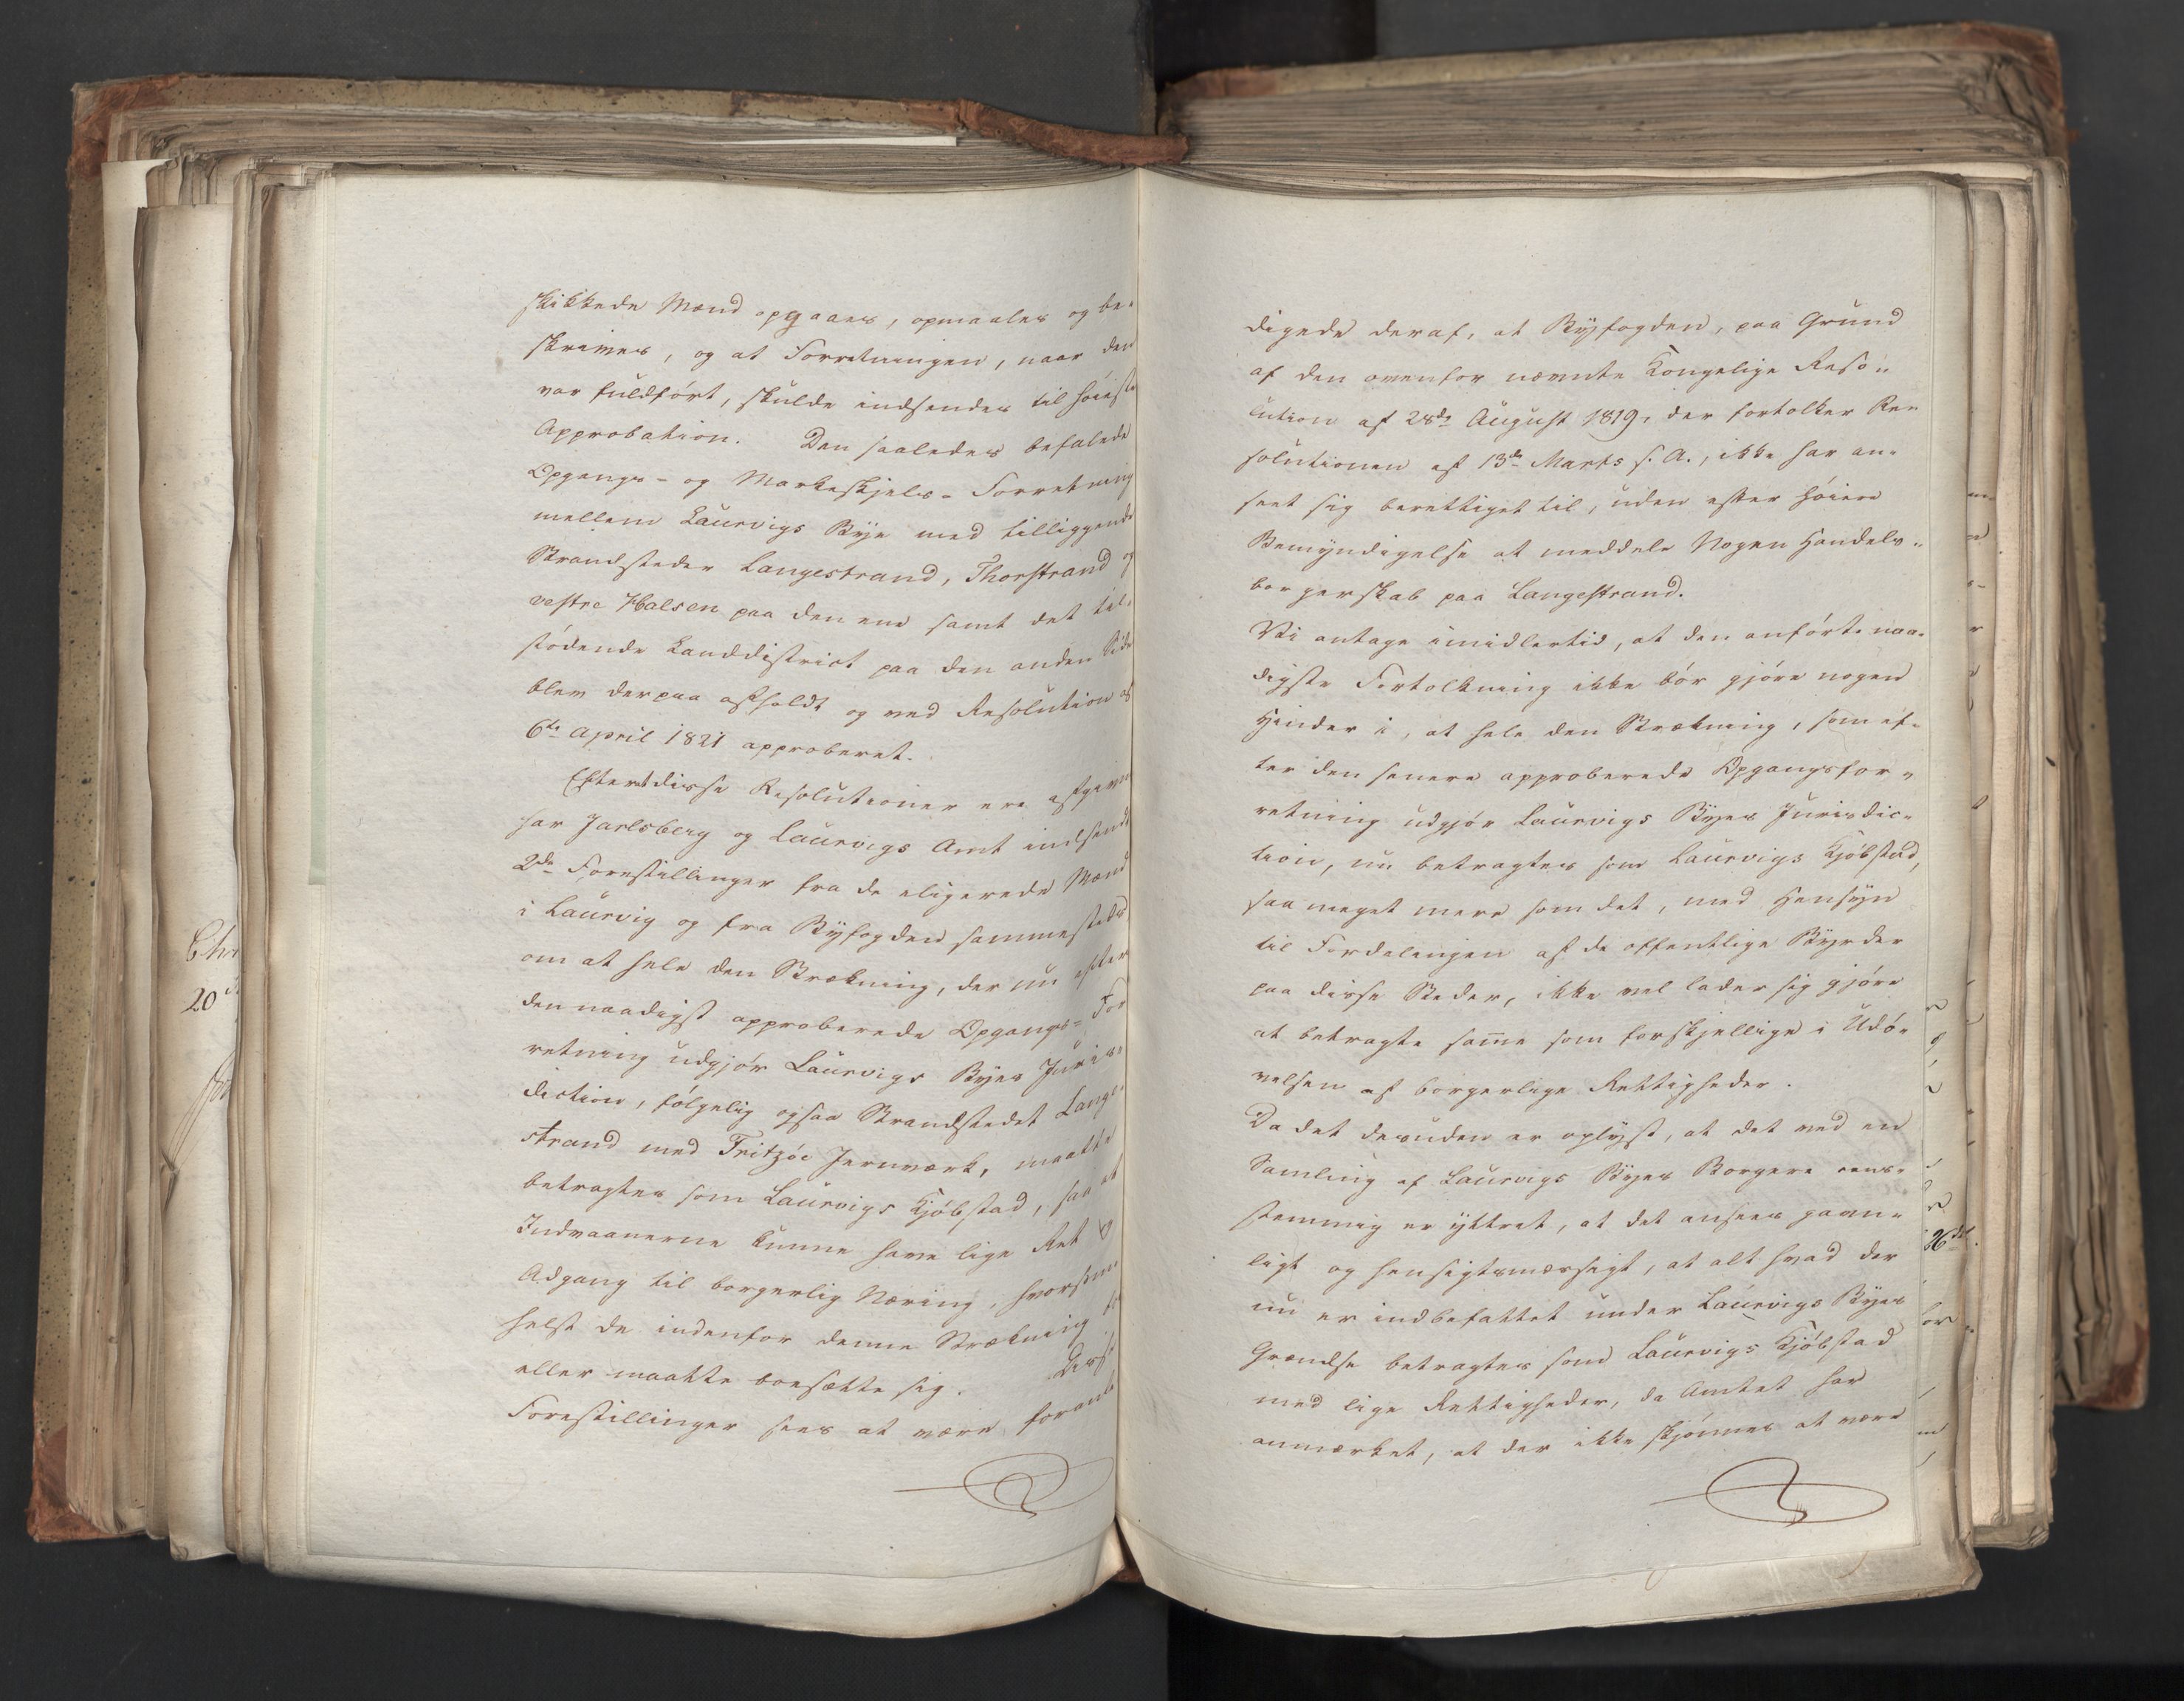 skikkede Mænd opgaaes, opmaales og be-
skrives, og at Forretningen, naar den
var fuldført, skulde indsendes til høieste
Approbation. Den saaledes befalede
Opgangs- og Markeskjels-Forretning
mellem Laurvigs Bye med tilliggende
Strandsteder Langestrand, Thorstrand og
vestre Halsen paa den ene samt det til-
stødende Landdistrict paa den anden Side
blev derpaa afholdt og ved Resolution af
6te April 1821 approberet.
Efterat disse Resolutioner ere afgivne
har Jarlsberg og Laurvigs Amt indsendt
2de Forestillinger fra de eligerede Mænd
i Laurvig og fra Byfogden sammesteds
om at hele den Strækning, der nu efter
den naadigst approberede Opgangs-For
retning udgjør Laurvigs Byes Juris-
diction, følgelig ogsaa Strandstedet Lange-
strand med Fritzøe Jernværk, maatte
betragtes som Laurvigs Kjøbstad, saa at
Indvaanerne kunne have lige Ret og
Adgang til borgerlig Næring, hvorsom-
helst de indenfor denne Strækning bo
eller maatte boesætte sig. Disse
Forestillinger sees at være foranle
digede deraf, at Byfogden, paa Grund
af den ovenfor nævnte Kongelige Reso-
lution af 28de August 1819, der fortolker Re-
solutionen af 13de Marts s. A., ikke har an-
seet sig berettiget til, uden efter høiere
Bemyndigelse at meddele Nogen Handels-
borgerskab paa Langestrand.
Vi antage imidlertid, at den anførte naa-
digste Fortolkning ikke bør gjøre nogen
Hinder i, at hele den Strækning, som ef-
ter den senere approberede Opgangsfor-
retning udgjør Laurvigs Byes Jurisdic-
tion, nu betragtes som Laurvigs Kjøbstad,
saa meget mere som det, med Hensyn
til Fordelingen af de offentlige Byrder
paa disse Steder, ikke vel lader sig gjøre
at betragte samme som forskjellige i Udø-
velsen af borgerlige Rettigheder.
Da det desuden er oplyst, at det ved en
Samling af Laurvigs Byes Borgere eens-
stemmig er yttret, at det ansees gavn-
ligt og hensigtsmæssigt, at alt hvad der
nu er indbefattet under Laurvigs Byes
Grændse betragtes som Laurvigs Kjøbstad
med lige Rettigheder, da Amtet har
anmærket, at der ikke skjønnes at være